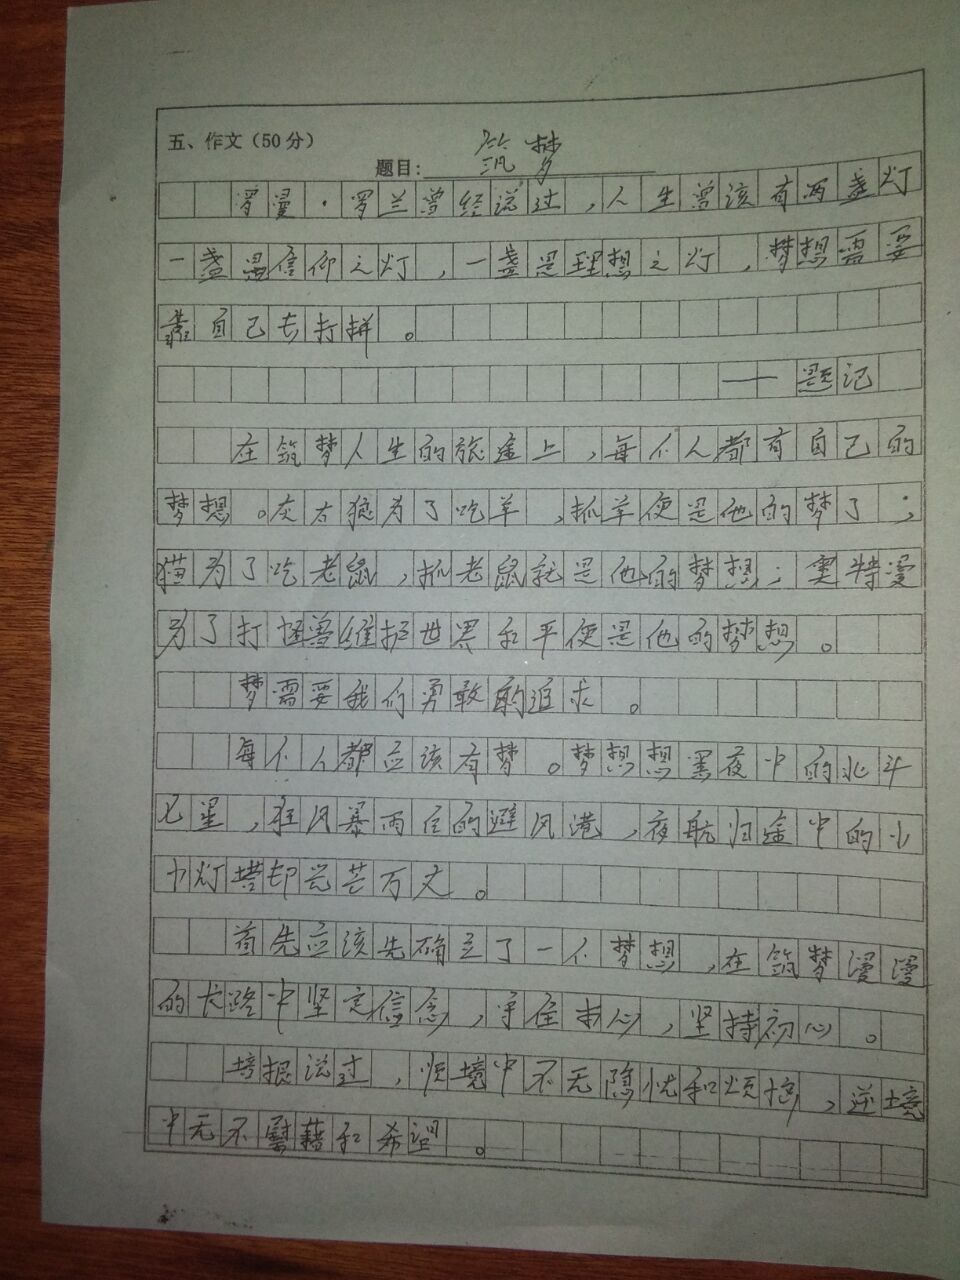 五、作文（50分）
题目：筑梦
罗曼·罗兰曾经说过，人生曾该有两盏灯
一盏是信仰之灯，一盏是理想之灯，梦想需要
靠自己去打拼。
——题记
在筑梦人生的旅途上，每个人都有自己的
梦想。灰太狼为了吃羊，抓羊便是他的梦了；
猫为了吃老鼠，抓老鼠就是他的梦想；奥特曼
为了打怪兽维护世界和平便是他的梦想。
梦需要我们勇敢的追求。
每个人都应该有梦。梦想想黑夜中的北斗
七星，狂风暴雨后的避风港，夜航归途中的小
小灯塔却光芒万丈。
首先应该先确立了一个梦想，在筑梦漫漫
的长路中坚定信念，守住本心，坚持初心。
培根说过，顺境中不无隐忧和烦恼，逆境
中无不慰藉和希望。